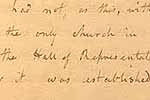 had not, as this, with
the only church in
the Hall of Representat
it was established